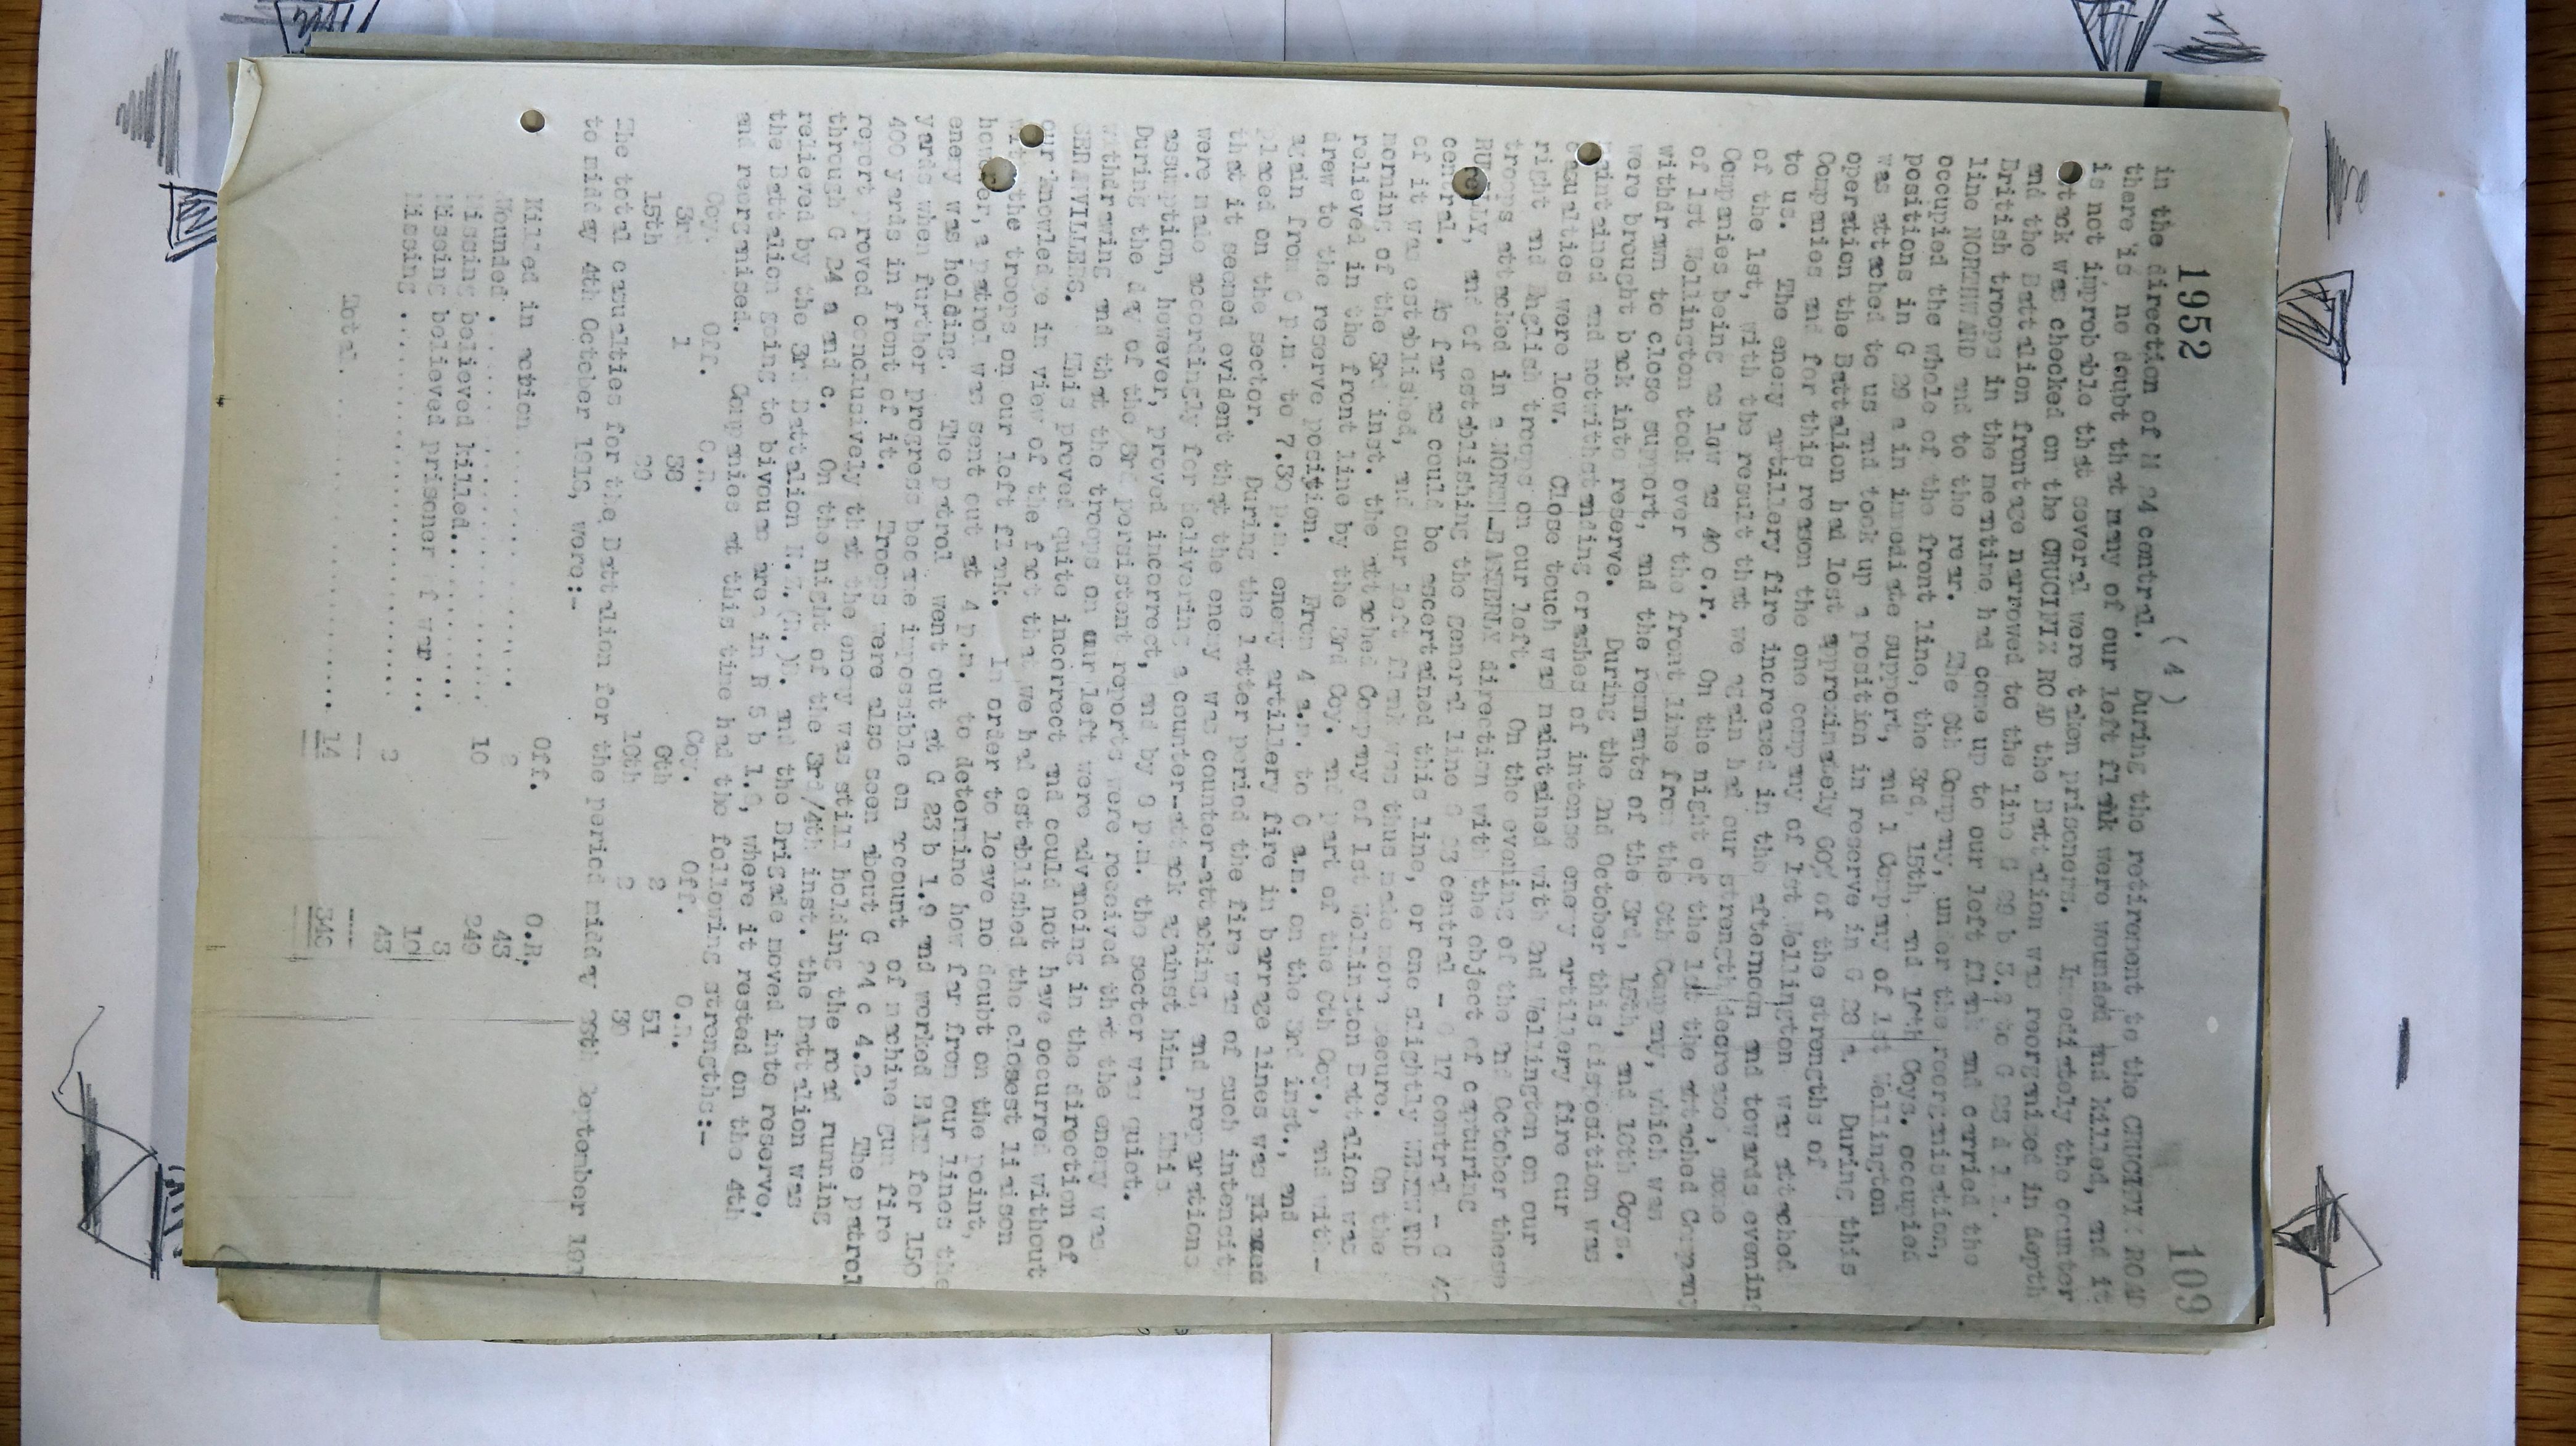 1952
109
( 4 )
in the direction of M 24 central. During the retirement to the CRUCIFIX ROAD
there is no doubt that many of our left flank were wounded and killed, and it
is not improbable that several were taken prisoners. Immediately the counter
attack was checked on the CRUCIFIX ROAD the Battalion was reorganised in depth
and the Battalion frontage narrowed to the line G 29 b 3.2 to G 23 d 1.1.
British troops in the meantime had come up to our left flank and carried the
line NORTHWARD and to the rear. The 6th Company, under the reorganisation,
occupied the whole of the front line, the 3rd, 15th, and 10th Coys. occupied
positions in G 29 a in immediate support, and 1 Company of 1st Wellington
was attached to us and took up a position in reserve in G 28 a. During this
operation the Battalion had lost approximately 60% of the strengths of
Companies and for this reason the one company of 1st Wellington was attached
to us. The enemy artillery fire increased in the afternoon and towards evening
of the 1st, with the result that we again had our strength decrease, some
Companies being as low as 40 o.r. On the night of the 1st the attached Company
of 1st Wellington took over the front line from the 6th Company, which was
withdrawn to close support, and the remnants of the 3rd, 15th, and 10th Coys.
were brought back into reserve. During the 2nd October this disposition was
maintained and notwithstanding crashes of intense enemy artillery fire our
casualties were low. Close touch was maintained with 2nd Wellington on our
right and English troops on our left. On the evening of the 2nd October these
troops attacked in a NORTH-EASTERLY direction with the object of capturing
RUMILLY, and of establishing the general line G 23 central - G 17 central - G
central. As far as could be ascertained this line, or one slightly WESTWARD
of it was established, and our left flank was thus made more secure. On the
morning of the 3rd inst. the attached Company of 1st Wellington Battalion was
relieved in the front line by the 3rd Coy. and part of the 6th Coy., and with-
drew to the reserve position. From 4 a.m. to 6 a.m. on the 3rd inst., and
again from 6 p.m. to 7.30 p.m. enemy artillery fire in barrage lines was placed
placed on the sector. During the latter period the fire was of such intensity
that it seemed evident that the enemy was counter-attacking, and preparations
were made accordingly for delivering a counter-attack against him. This
assumption, however, proved incorrect, and by 8 p.m. the sector was quiet.
During the day of the 3rd persistent reports were received that the enemy was
withdrawing and that the troops on our left were advancing in the direction of
SERANVILLERS. This proved quite incorrect and could not have occurred without
our knowledge in view of the fact that we had established the closest liaison
with the troops on our left flank. In order to leave no doubt on the point,
however, a patrol was sent out at 4 p.m. to determine how far from our lines the
enemy was holding. The patrol went out at G 23 b 1.9 and worked EAST for 150
yards when further progress became impossible on account of machine gun fire
400 yards in front of it. Troops were also seen about G 24 c 4.2. The patrol
report proved conclusively that the enemy was still holding the road running
through G 24 a and c. On the night of the 3rd/4th inst. the Battalion was
relieved by the 3rd Battalion N.Z.(R.)B. and the Brigade moved into reserve,
the Battalion going to bivouac area in R 5 b 1.9, where it rested on the 4th
and reorganised. Companies at this time had the following strengths:-
Coy. Off. O.R. Coy. Off. O.R.
3rd 1 38 6th 2 51
15th 29 10th 2 30
The total casualties for the Battalion for the period midday 28th September 191
to midday 4th October 1918, were:-
Off. O.R.
Killed in action 2 43
Wounded 10 240
Missing believed killed 3
Missing believed prisoner of war 19
Missing 2 43
Total. 14 348